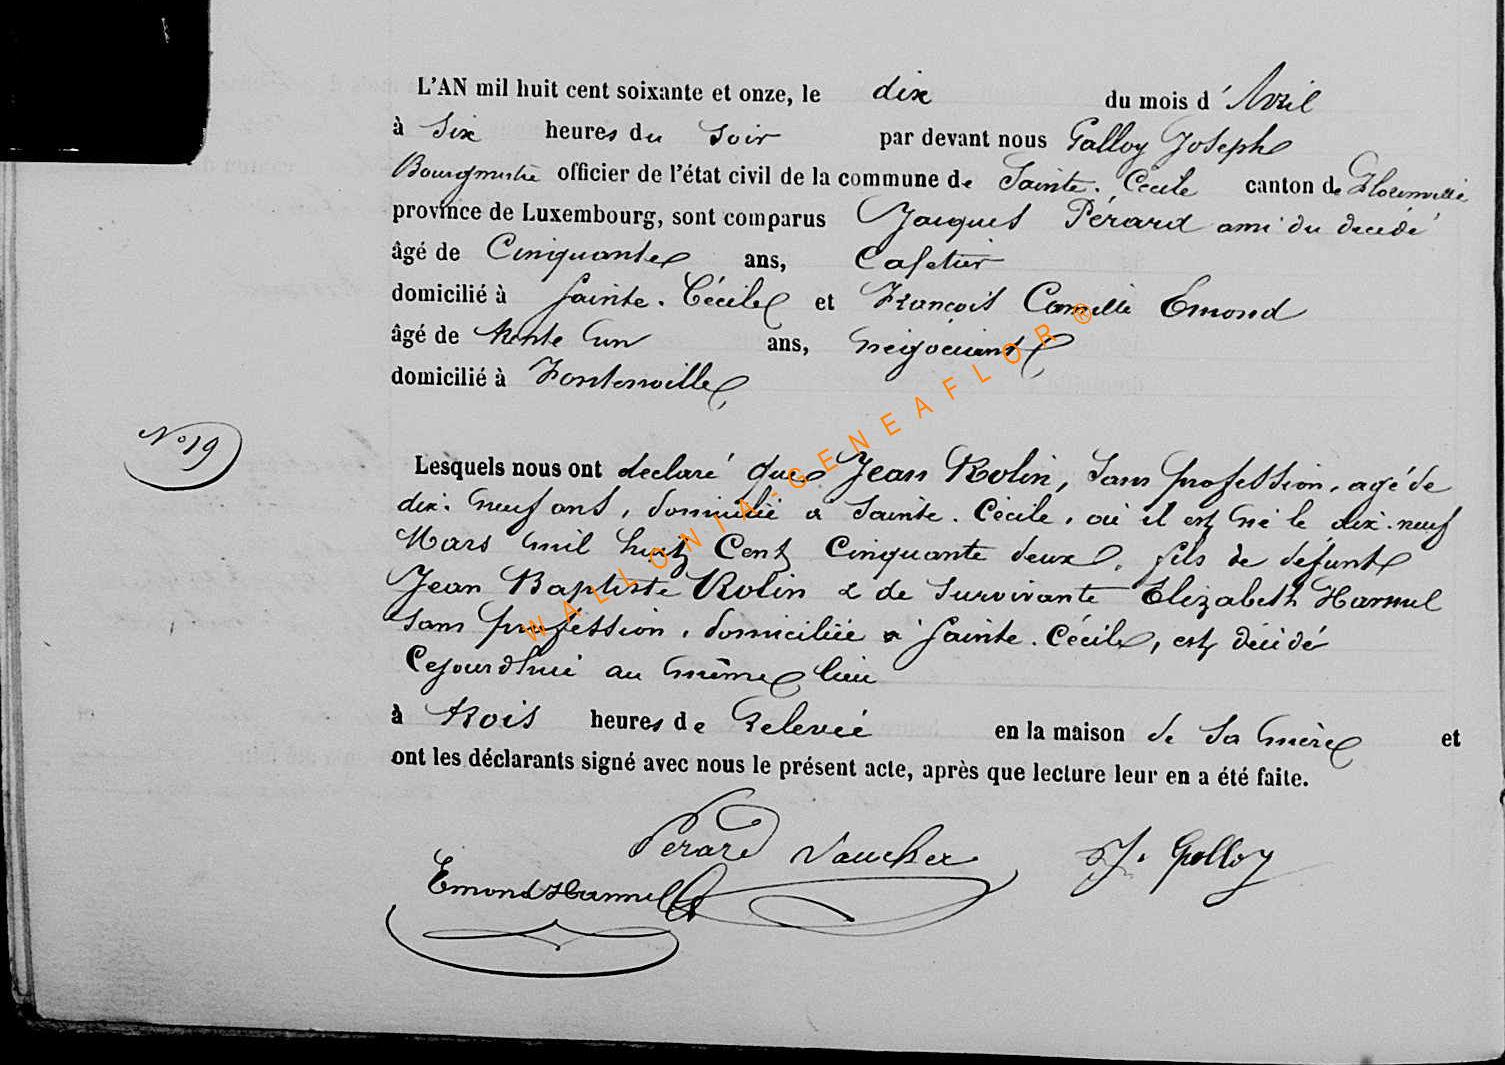 L'AN mil huit cent soixante et onze, le dix du mois d'Avril
à Six heures du Soir par devant nous Galloy Joseph
Bourgmestre officier de l'état civil de la commune de Sainte-Cécile canton de Florenville
province de Luxembourg, sont comparus Jacques Pérard ami du décédé
âgé de Cinquante ans, Cafetier
domicilié à Sainte-Cécile et François Camille Emond
âgé de trente un ans, négociant
domicilié à Fontenoille
No 19
Lesquels nous ont declaré que Jean Rolin, Sans profession, agé de
dix-neuf ans, domicilié à Sainte-Cécile, où il est né le dix-neuf
Mars mil huit Cent Cinquante deux, fils de défunt
Jean Baptiste Rolin & de Survivante Elizabeth Hannel
Sans profession, domiciliée à Sainte-Cécile, est décédé
Cejourd'hui au même lieu
à trois heures de relevée en la maison de Sa mère et
ont les déclarants signé avec nous le présent acte, après que lecture leur en a été faite.
Pérard Vaucher J. Galloy
Emond Hannel
WALLONIA-GENEAFLOR ®